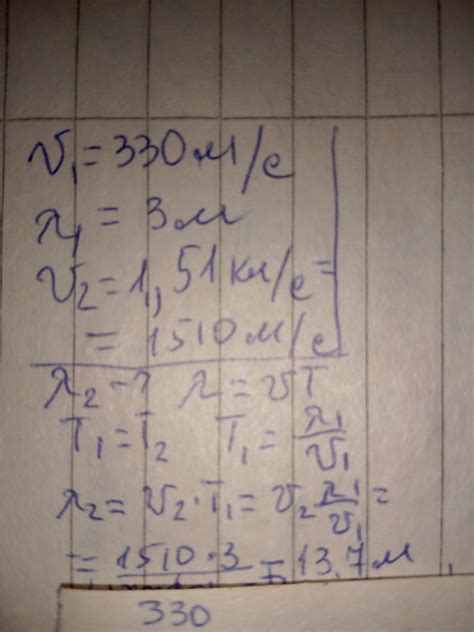 v₁ = 330 м/с
λ₁ = 3 м
v₂ = 1,51 км/с =
= 1510 м/с
λ₂ - ? λ = vT
T₁ = T₂ T₁ = λ₁/v₁
λ₂ = v₂ · T₁ = v₂ λ₁/v₁ =
= 1510 · 3 / 330 = 13,7 м